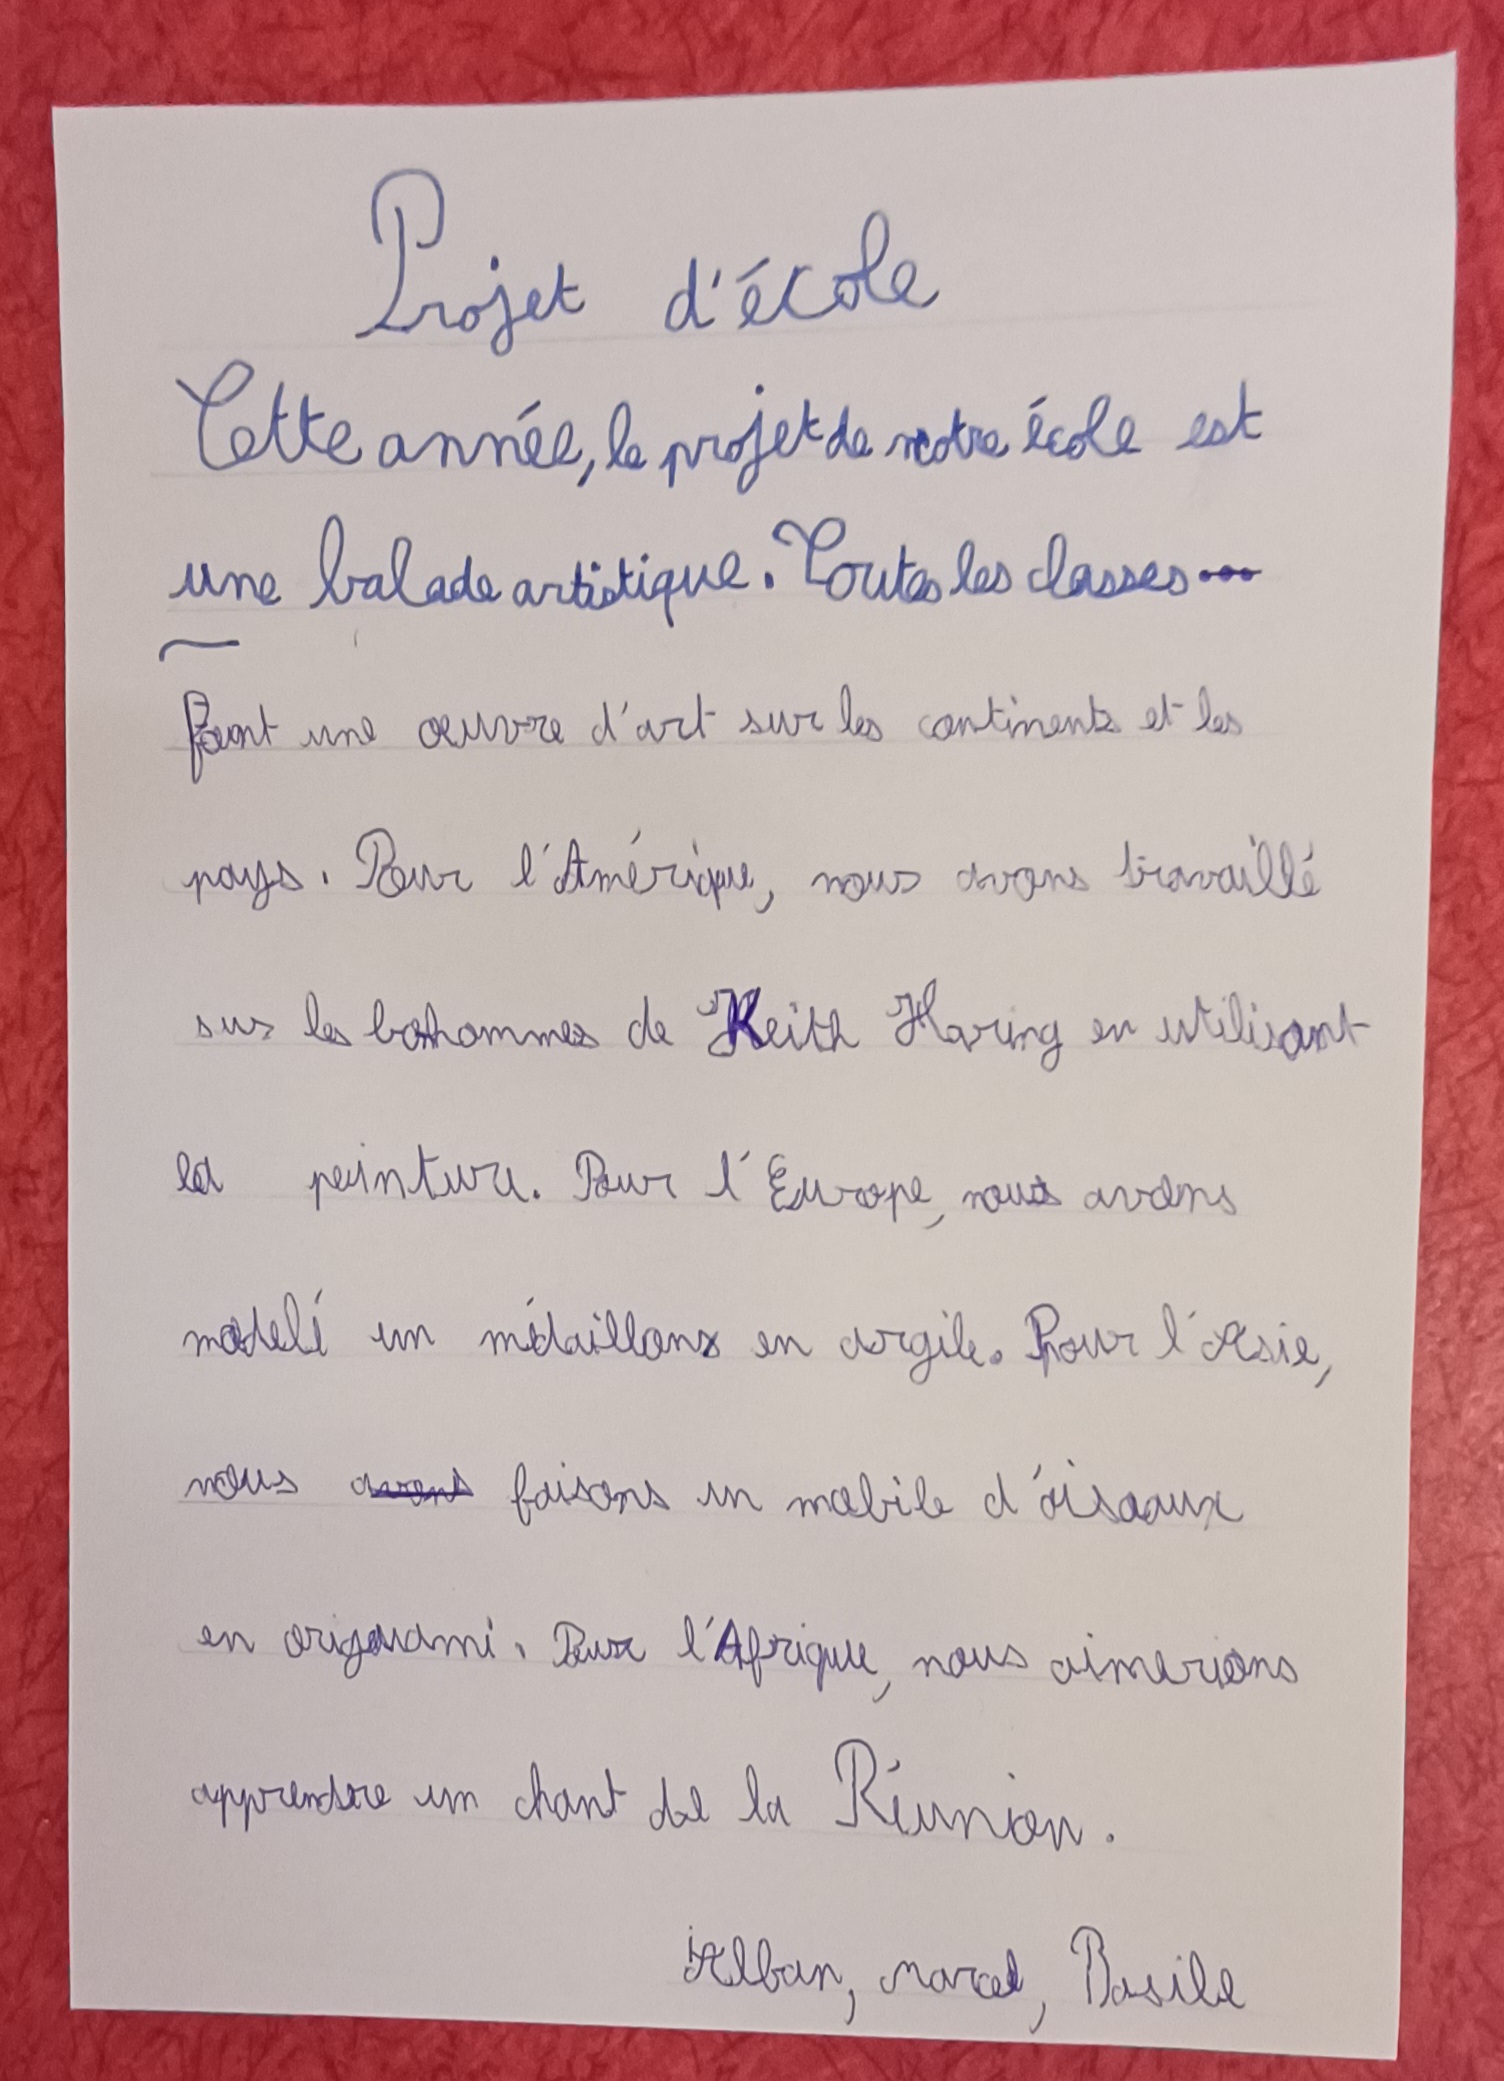 Projet d'école
Cette année, le projet de notre école est
une balade artistique. Toutes les classes...
font une œuvre d'art sur les continents et les
pays. Pour l'Amérique, nous avons travaillé
sur les bohommes de Keith Haring en utilisant
la peinture. Pour l'Europe, nous avons
modelé un médaillons en argile. Pour l'Asie,
nous avons faisons un mobile d'oisaux
en origuami. Pour l'Afrique, nous aimerions
apprendre un chant de la Réunion.
Alban, Marcel, Basile